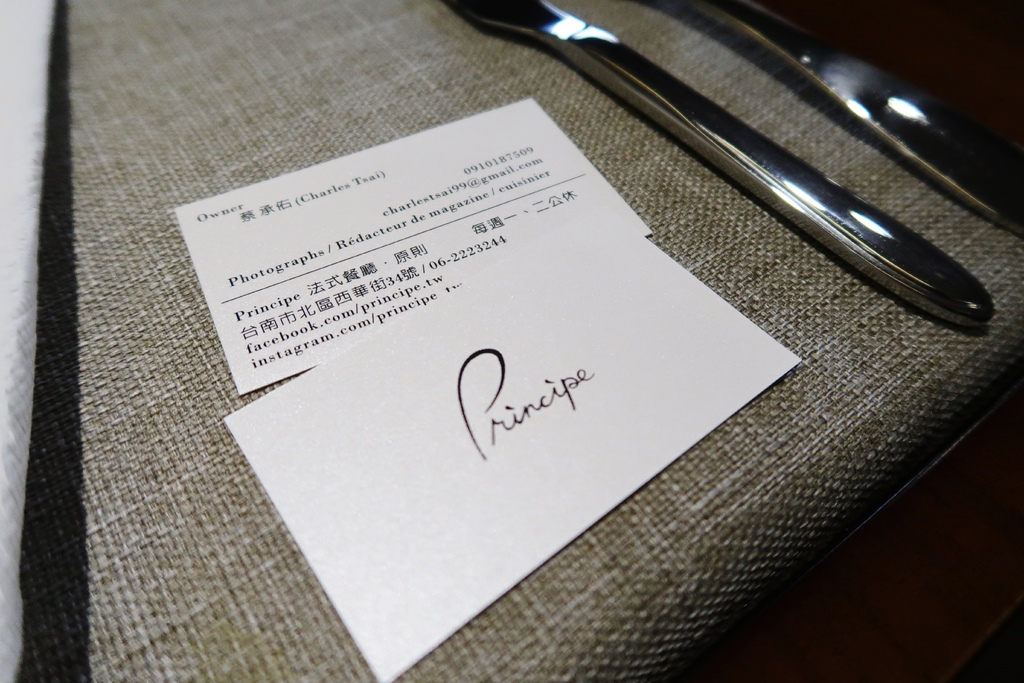 Owner
蔡承佑 (Charles Tsai)
0910187509
charlestsai99@gmail.com
Photographs / Rédacteur de magazine / cuisinier
Principe 法式餐廳．原則 每週一、二公休
台南市北區西華街34號 / 06-2223244
facebook.com/principe.tw
instagram.com/principe_tw
Principe